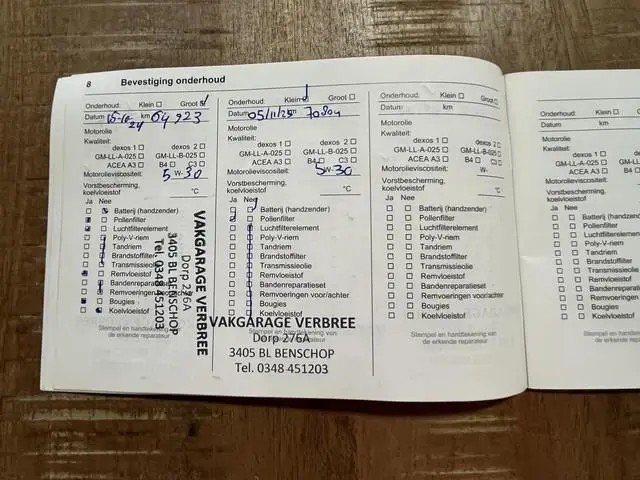 8 Bevestiging onderhoud
Onderhoud: Klein ☐ Groot ☑
Datum km 64 923
Motorolie
Kwaliteit:
dexos 1 ☐ dexos 2 ☐
GM-LL-A-025 ☐ GM-LL-B-025 ☐
ACEA A3 ☐ B4 ☐ C3 ☐
Motorolieviscositeit: 5 W-30
Vorstbescherming, koelvloeistof °C
Ja Nee
Batterij (handzender)
Pollenfilter
Luchtfilterelement
Poly-V-riem
Tandriem
Brandstoffilter
Transmissieolie
Remvloeistof
Bandenreparatieset
Remvoeringen
Bougies
Koelvloeistof
Stempel en handtekening van
de erkende reparateur
VAKGARAGE VERBREE
Dorp 276A
3405 BL BENSCHOP
Tel. 0348 451203
Onderhoud: Klein ☑ Groot ☐
Datum 05/11/25 km 70804
Motorolie
Kwaliteit:
dexos 1 ☐ dexos 2 ☐
GM-LL-A-025 ☐ GM-LL-B-025 ☐
ACEA A3 ☐ B4 ☐ C3 ☐
Motorolieviscositeit: 5W-30
Vorstbescherming,
koelvloeistof °C
Ja Nee
Batterij (handzender)
Pollenfilter
Luchtfilterelement
Poly-V-riem
Tandriem
Brandstoffilter
Transmissieolie
Remvloeistof
Bandenreparatieset
Remvoeringen voor/achter
Bougies
Koelvloeistof
Stempel en handtekening van
de erkende reparateur
VAKGARAGE VERBREE
Dorp 276A
3405 BL BENSCHOP
Tel. 0348 451203
Onderhoud: Klein ☐ Groot ☐
Datum km
Motorolie
Kwaliteit:
dexos 1 ☐ dexos 2 ☐
GM-LL-A-025 ☐ GM-LL-B-025 ☐
ACEA A3 ☐ B4 ☐ C3 ☐
Motorolieviscositeit: W-
Vorstbescherming,
koelvloeistof °C
Ja Nee
Batterij (handzender)
Pollenfilter
Luchtfilterelement
Poly-V-riem
Tandriem
Brandstoffilter
Transmissieolie
Remvloeistof
Bandenreparatieset
Remvoeringen voor/achter
Bougies
Koelvloeistof
Stempel en handtekening van
de erkende reparateur
Onderhoud: Klein
Datum km
Motorolie
Kwaliteit:
dexos 1 ☐
GM-LL-A-025 ☐ GM
ACEA A3 ☐
Motorolieviscositeit:
Vorstbescherming,
koelvloeistof
Ja Nee
Batterij (hand
Pollenfilter
Luchtfilterele
Poly-V-riem
Tandriem
Brandstoffilt
Transmissi
Remvloeis
Bandenre
Remvoer
Bougies
Koelvloe
Stempel en hand
de erkende